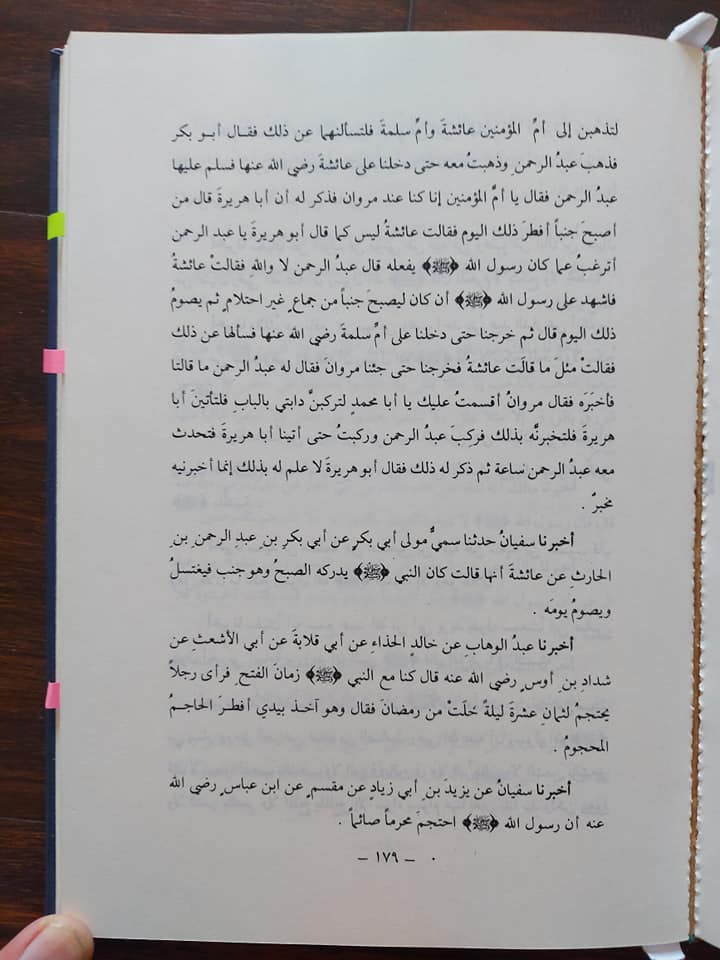 لتذهبن إلى أمِّ المؤمنين عائشةَ وأمِّ سلمةَ فلتسألنهما عن ذلك فقال أبو بكر
فذهبَ عبدُ الرحمنِ وذهبتُ معه حتى دخلنا على عائشةَ رضي الله عنها فسلم عليها
عبدُ الرحمن فقال يا أمَّ المؤمنين إنا كنا عند مروان فذكر له أن أبا هريرةَ قال من
أصبحَ جنباً أفطرَ ذلك اليوم فقالت عائشةُ ليس كما قال أبو هريرةَ يا عبد الرحمن
أترغبُ عما كان رسول الله ﴿ﷺ﴾ يفعله قال عبدُ الرحمن لا واللهِ فقالتْ عائشةُ
فاشهد على رسول الله ﴿ﷺ﴾ أن كان ليصبحَ جنباً من جماعٍ غير احتلامٍ ثم يصومُ
ذلك اليوم قال ثم خرجنا حتى دخلنا على أمِّ سلمةَ رضي الله عنها فسألها عن ذلك
فقالتْ مثلَ ما قالَت عائشةُ فخرجنا حتى جئنا مروانَ فقال له عبدُ الرحمن ما قالتا
فأخبَرَه فقال مروانُ أقسمتُ عليك يا أبا محمدٍ لتركبنَّ دابتي بالبابِ فلتأتينَ أبا
هريرةَ فلتخبرنَّه بذلك فركِبَ عبدُ الرحمن وركبتُ حتى أتينا أبا هريرةَ فتحدث
معه عبدُ الرحمن ساعة ثم ذكر له ذلك فقال أبو هريرةَ لا علم له بذلك إنما أخبرنيه
مخبرٌ .
أخبرنا سفيانُ حدثنا سميٌّ مولى أبي بكرٍ عن أبي بكرِ بنِ عبدِ الرحمنِ بنِ
الحارثِ عن عائشةَ أنها قالت كان النبي ﴿ﷺ﴾ يدركه الصبحُ وهو جنب فيغتسلُ
ويصومُ يومَه .
أخبرنا عبدُ الوهابِ عن خالدٍ الحذاءِ عن أبي قلابةَ عن أبي الأشعثِ عن
شدادِ بنِ أوسٍ رضي الله عنه قال كنا مع النبي ﴿ﷺ﴾ زمانَ الفتحِ فرأى رجلاً
يحتجمُ لثمانِ عشرةَ ليلةً خلَتْ من رمضانَ فقال وهو آخذ بيدي أفطرَ الحاجمُ
المحجومُ .
أخبرنا سفيانُ عن يزيدَ بنِ أبي زيادٍ عن مقسمٍ عن ابن عباسٍ رضي الله
عنه أن رسول الله ﴿ﷺ﴾ احتجمَ محرماً صائماً .
– ١٧٩ –